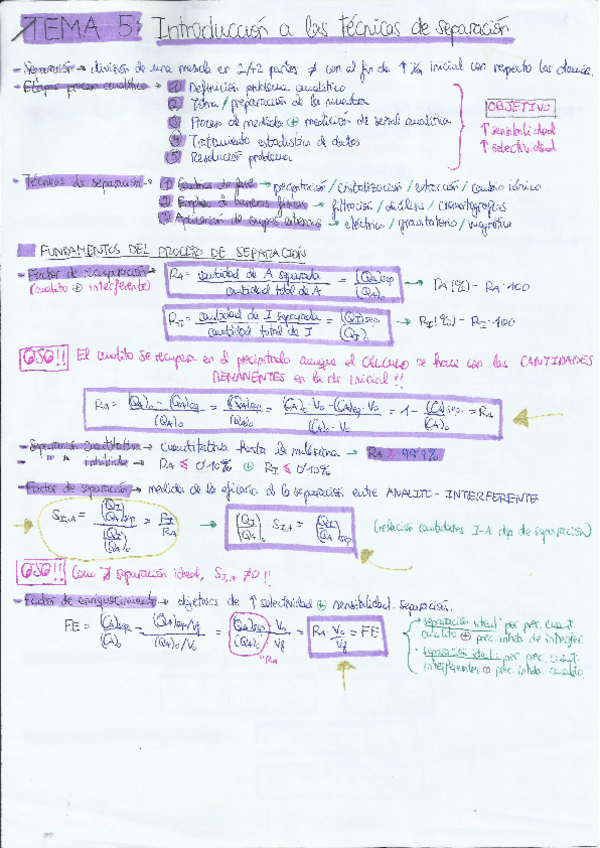 TEMA 5: Introducción a las técnicas de separación
- Separación → división de una mezcla en 2/+2 partes ≠ con el fin de ↑ inicial con respecto las demás.
- Etapas proceso analítico → ① Definición problema analítico
② Toma / preparación de la muestra
③ Proceso de medida ⊕ medición de señal analítica
④ Tratamiento estadístico de datos
⑤ Resolución problema
OBJETIVO
↑ sensibilidad
↑ selectividad
- Técnicas de separación → ① Cambios de fase → precipitación / cristalización / extracción / cambio iónico
② Empleo de barreras físicas → filtración / diálisis / cromatografías
③ Aplicación de campos externos → eléctrico / gravitatorio / magnético
FUNDAMENTOS DEL PROCESO DE SEPARACIÓN
- Factor de recuperación → RA = cantidad de A separada / cantidad total de A = (QA)sep / (QA)o → RA (%) = RA · 100
(analito ⊕ interferente)
RI = cantidad de I separada / cantidad total de I = (QI)sep / (QI)o → RI (%) = RI · 100
OSO!! El analito se recupera en el precipitado aunque el CÁLCULO se hace con las CANTIDADES
REMANENTES en la inicial!!
RA = (QA)o - (QA)sep / (QA)o = (QA)sep / (QA)o = (CA)o · Vo - (CA)sep · Vo / (CA)o · Vo = 1 - (CA)sep / (CA)o = RA
- Separación cuantitativa → cuantitativa hasta la milésima → RA ≥ 99'9%
- " " inhibida → RA ≤ 0'10% ⊕ RI ≤ 0'10%
- Factor de separación → medida de la eficacia de la separación entre ANALITO - INTERFERENTE
SI,A = (QI/QA)sep / (QI/QA)o = RI / RA → (QI/QA)o SI,A = (QI/QA)sep (relación cantidades I-A dsp de separación)
OSO!! Como ∄ separación ideal, SI,A ≠ 0!!
- Factor de enriquecimiento → objetivos de ↑ selectividad ⊕ sensibilidad. Separación.
FE = (CA)sep / (CA)o = (QA)sep/Vf / (QA)o/Vo = (QA)sep / (QA)o · Vo / Vf = RA · Vo / Vf = FE
"RA
· separación ideal: por prec. cuant.
analito ⊕ prec. inhib. de interfer.
· separación ideal: por prec. cuant.
interferentes prec. inhib. analito